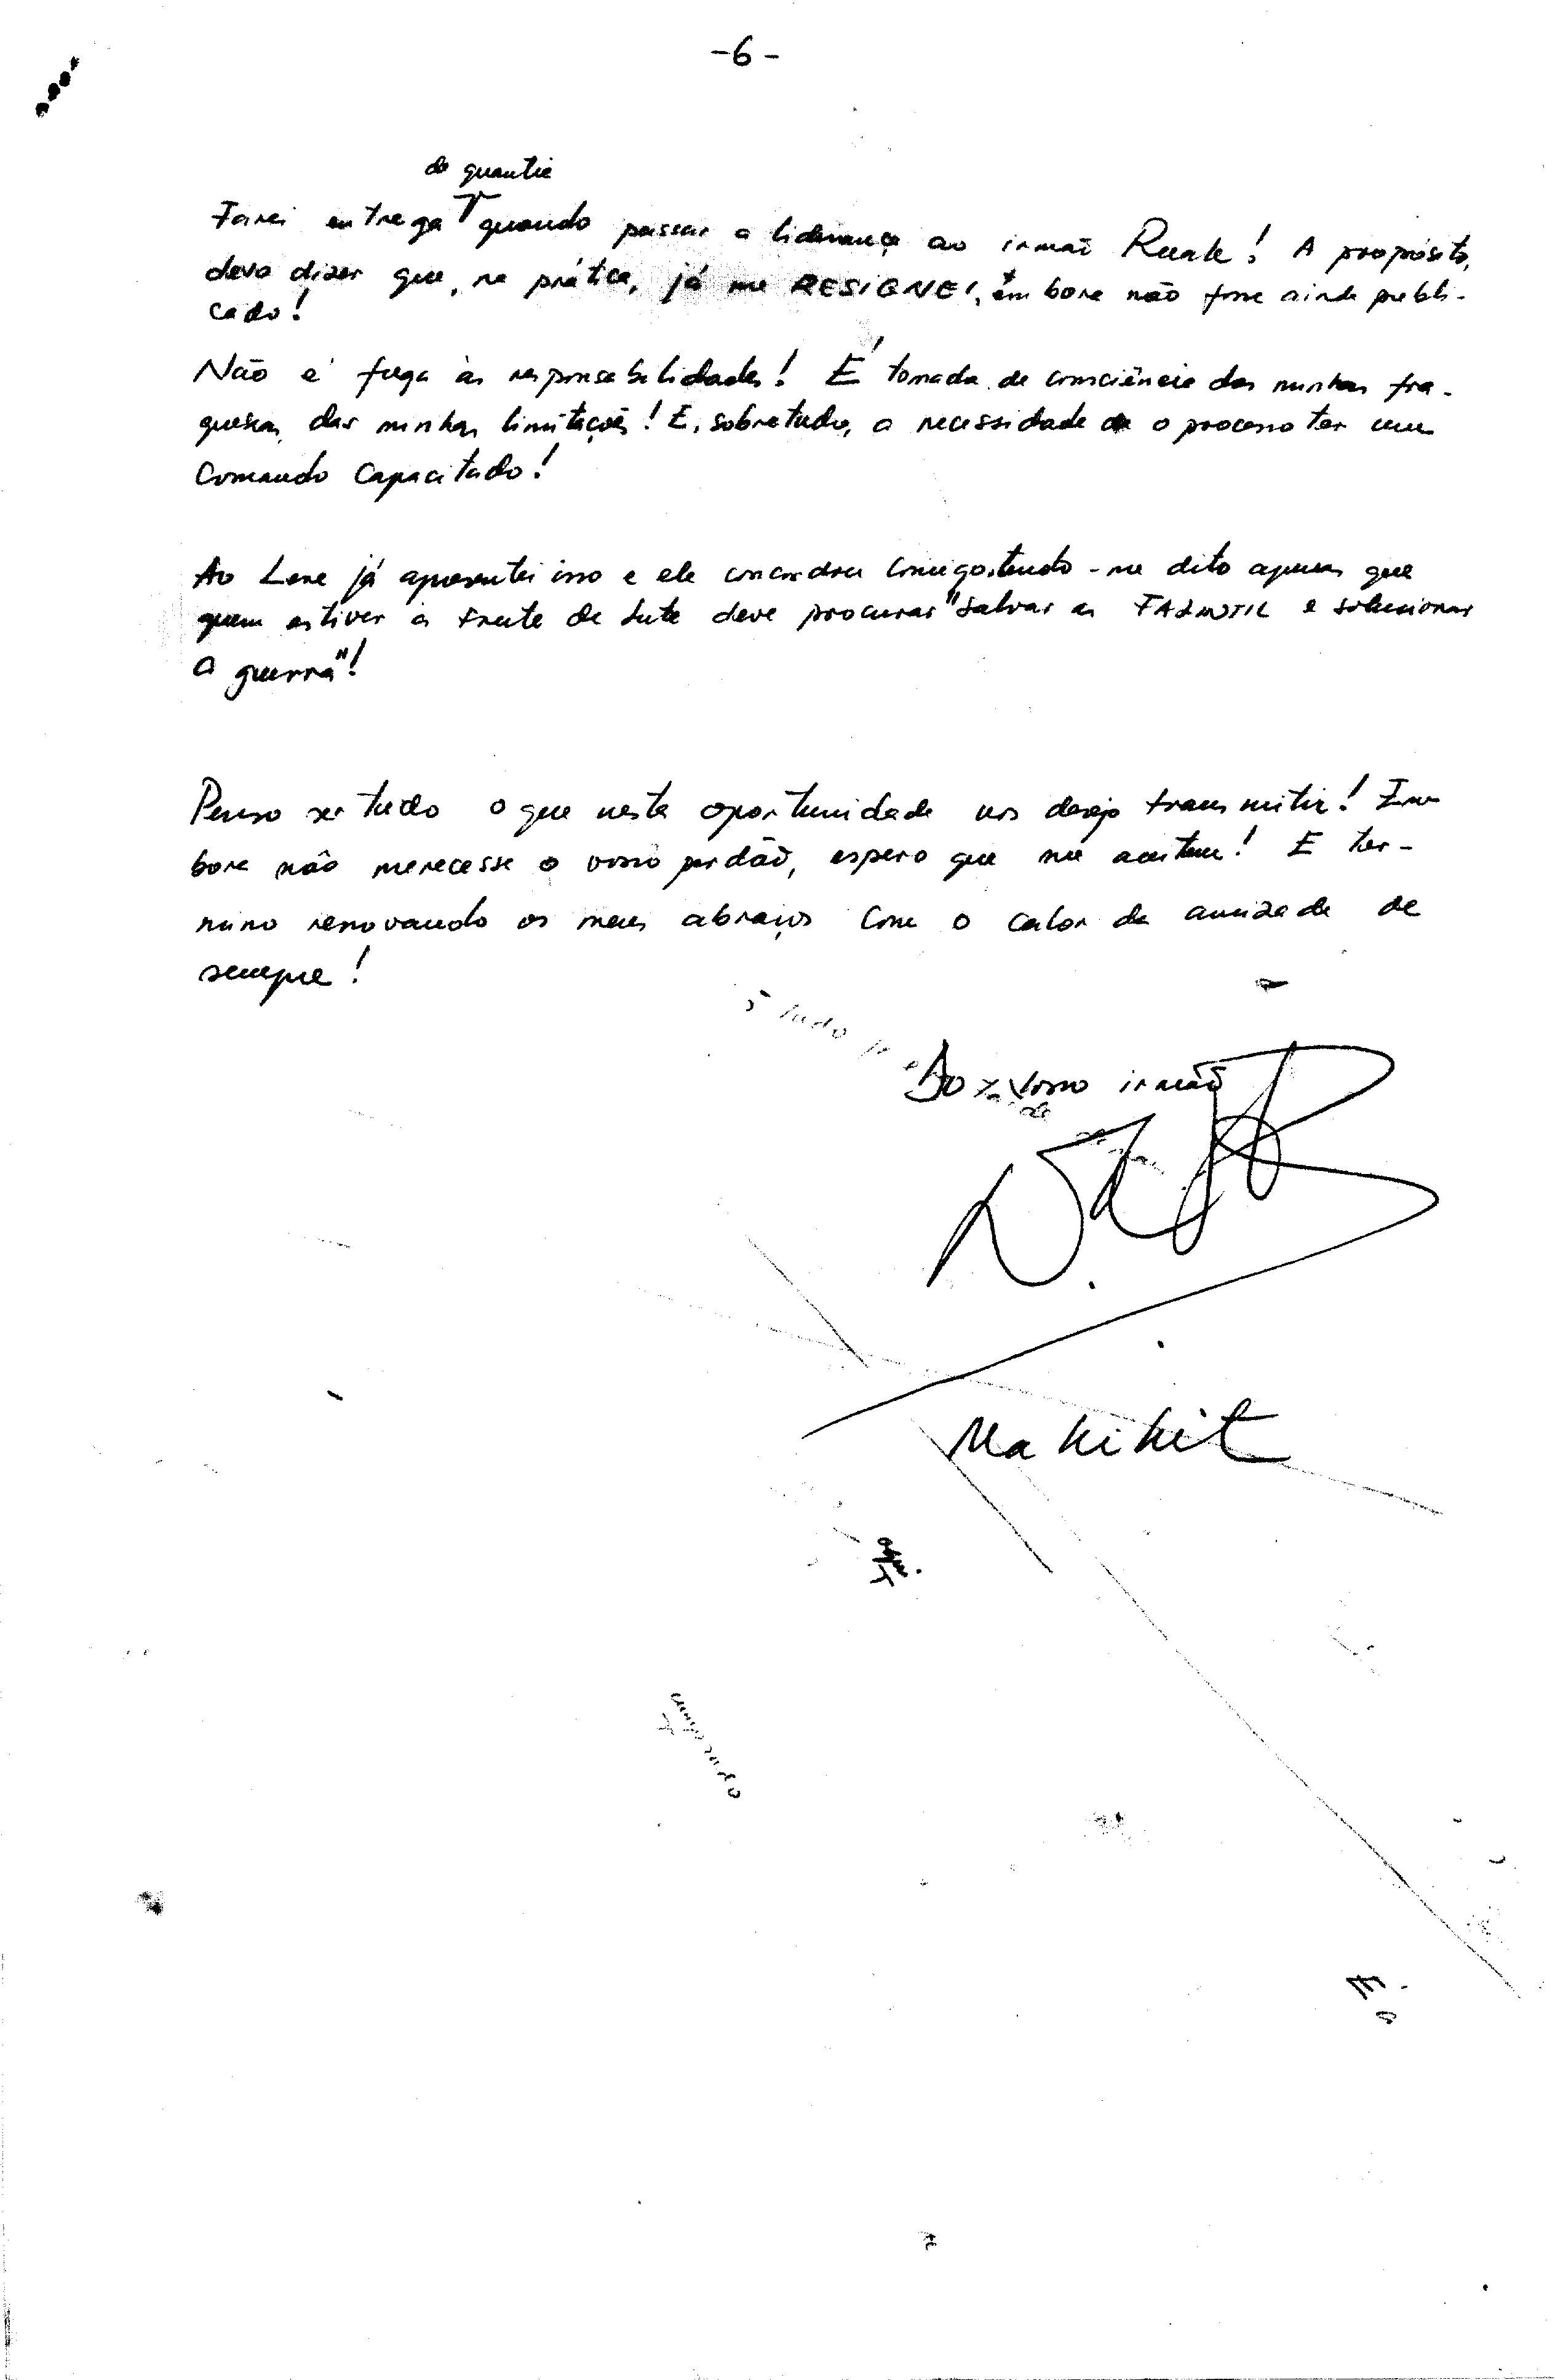 -6-
da quantia
Farei entrega quando passar a liderança ao irmão Ruak! A propósito,
devo dizer que, na prática, já me RESIGNEI, embora não fosse ainda publi-
cado!
Não é fuga às responsabilidades! É tomada de consciência das minhas fra-
quesas, das minhas limitações! E, sobretudo, a necessidade de o processo ter um
Comando Capacitado!
Ao Lere já apresentei isso e ele concordou comigo, tendo-me dito apenas que
quem estiver à frente da Luta deve procurar "Salvar as FALINTIL e solucionar
a guerra"!
Penso ser tudo o que nesta oportunidade vos desejo transmitir! Em
bora não merecesse o vosso perdão, espero que me aceitem! E ter-
mino renovando os meus abraços com o calor da amizade de
sempre!
Do vosso irmão